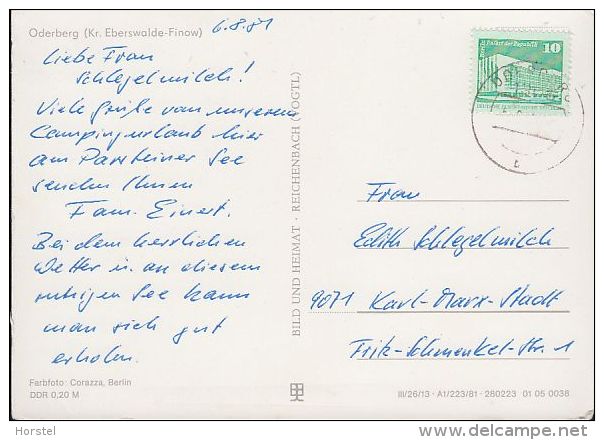 Oderberg (Kr. Eberswalde-Finow)
6.8.81
Liebe Frau
Schlegelmilch!
Viele Grüße von unserem
Campingurlaub hier
am Parsteiner See
senden Ihnen
Fam. Einert.
Bei dem herrlichen
Wetter u. an diesem
ruhigen See kann
man sich gut
erholen.
Farbfoto: Corazza, Berlin
DDR 0,20 M
BILD UND HEIMAT · REICHENBACH (VOGTL)
10
Frau
Edith Schlegelmilch
9071 Karl-Marx-Stadt
Fritz-Schmenkel-Str. 1
III/26/13 · A1/223/81 · 280223 01 05 0038
Horstel
delcampe.net